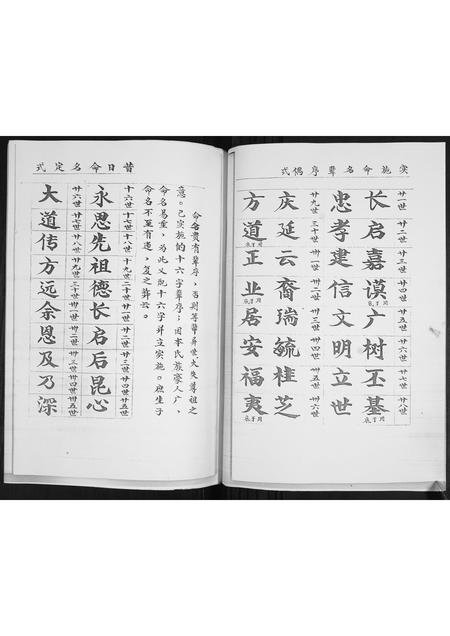 实施命名辈序偶式
廿一世 廿二世 廿三世 廿四世 廿五世 廿六世 廿七世 廿八世
长启嘉谟广树丕基
忠孝建信文明立世
廿九世 三十世 卅一世 卅二世 卅三世 卅四世 卅五世 卅六世
庆延云裔瑞毓桂芝
方道正业居安福夷
命名贵有辈序,否则等辈并世,大失尊祖之
意。已实施的十六字辈序;因本氏族豪人广,
命名易重,为此义配十六字并立实施。庶生子
命名不至有违,复之弊云。
昔日命名定式
十六世 十七世 十八世 十九世 二十世 廿一世 廿二世 廿三世 廿四世 廿五世
永思先祖德长启后昆心
廿六世 廿七世 廿八世 廿九世 三十世 卅一世 卅二世 卅三世 卅四世 卅五世
大道传方远余恩及乃深